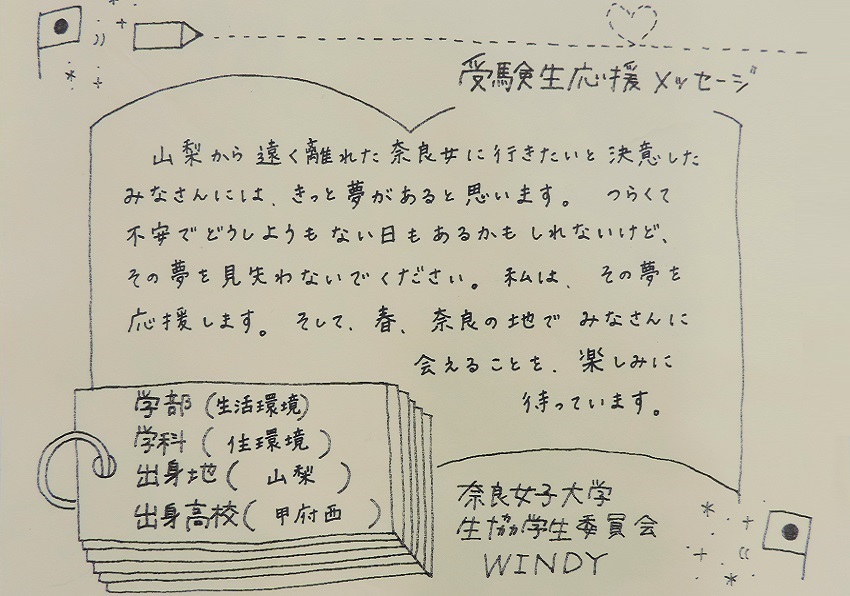 受験生応援メッセージ
山梨から遠く離れた奈良女に行きたいと決意した
みなさんには、きっと夢があると思います。 つらくて
不安でどうしようもない日もあるかもしれないけど、
その夢を見失わないでください。 私は、その夢を
応援します。 そして、春、奈良の地でみなさんに
会えることを、楽しみに
待っています。
学部(生活環境)
学科(住環境)
出身地(山梨)
出身高校(甲府西)
奈良女子大学
生協学生委員会
WINDY